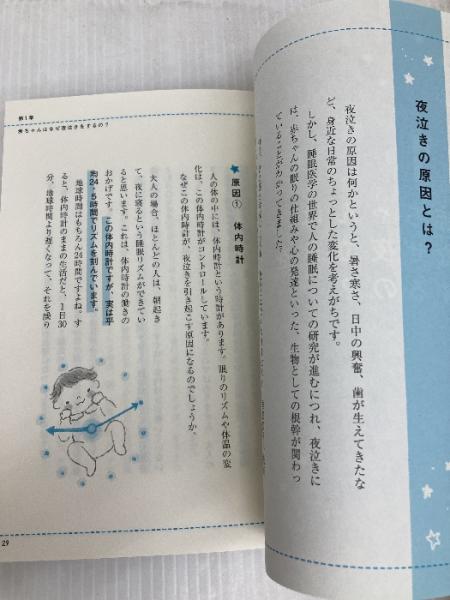 夜泣きの原因とは?
夜泣きの原因は何かというと、暑さ寒さ、日中の興奮、歯が生えてきたな
ど、身近な日常のちょっとした変化を考えがちです。
しかし、睡眠医学の世界で人の睡眠についての研究が進むにつれ、夜泣きに
は、赤ちゃんの眠りの仕組みや心の発達といった、生物としての根幹が関わっ
ていることがわかってきました。
第1章
赤ちゃんはなぜ夜泣きをするの?
原因① 体内時計
人の体の中には、体内時計という時計があります。眠りのリズムや体温の変
化は、この体内時計がコントロールしています。
なぜこの体内時計が、夜泣きを引き起こす原因になるのでしょうか。
大人の場合、ほとんどの人は、朝起き
て、夜に寝るという睡眠リズムができてい
ると思います。これは、体内時計の働きの
おかげです。この体内時計ですが、実は平
均24.5時間でリズムを刻んでいます。
地球時間はもちろん24時間ですよね。す
ると、体内時計のままの生活だと、1日30
分、地球時間より遅くなって、それを繰り
29